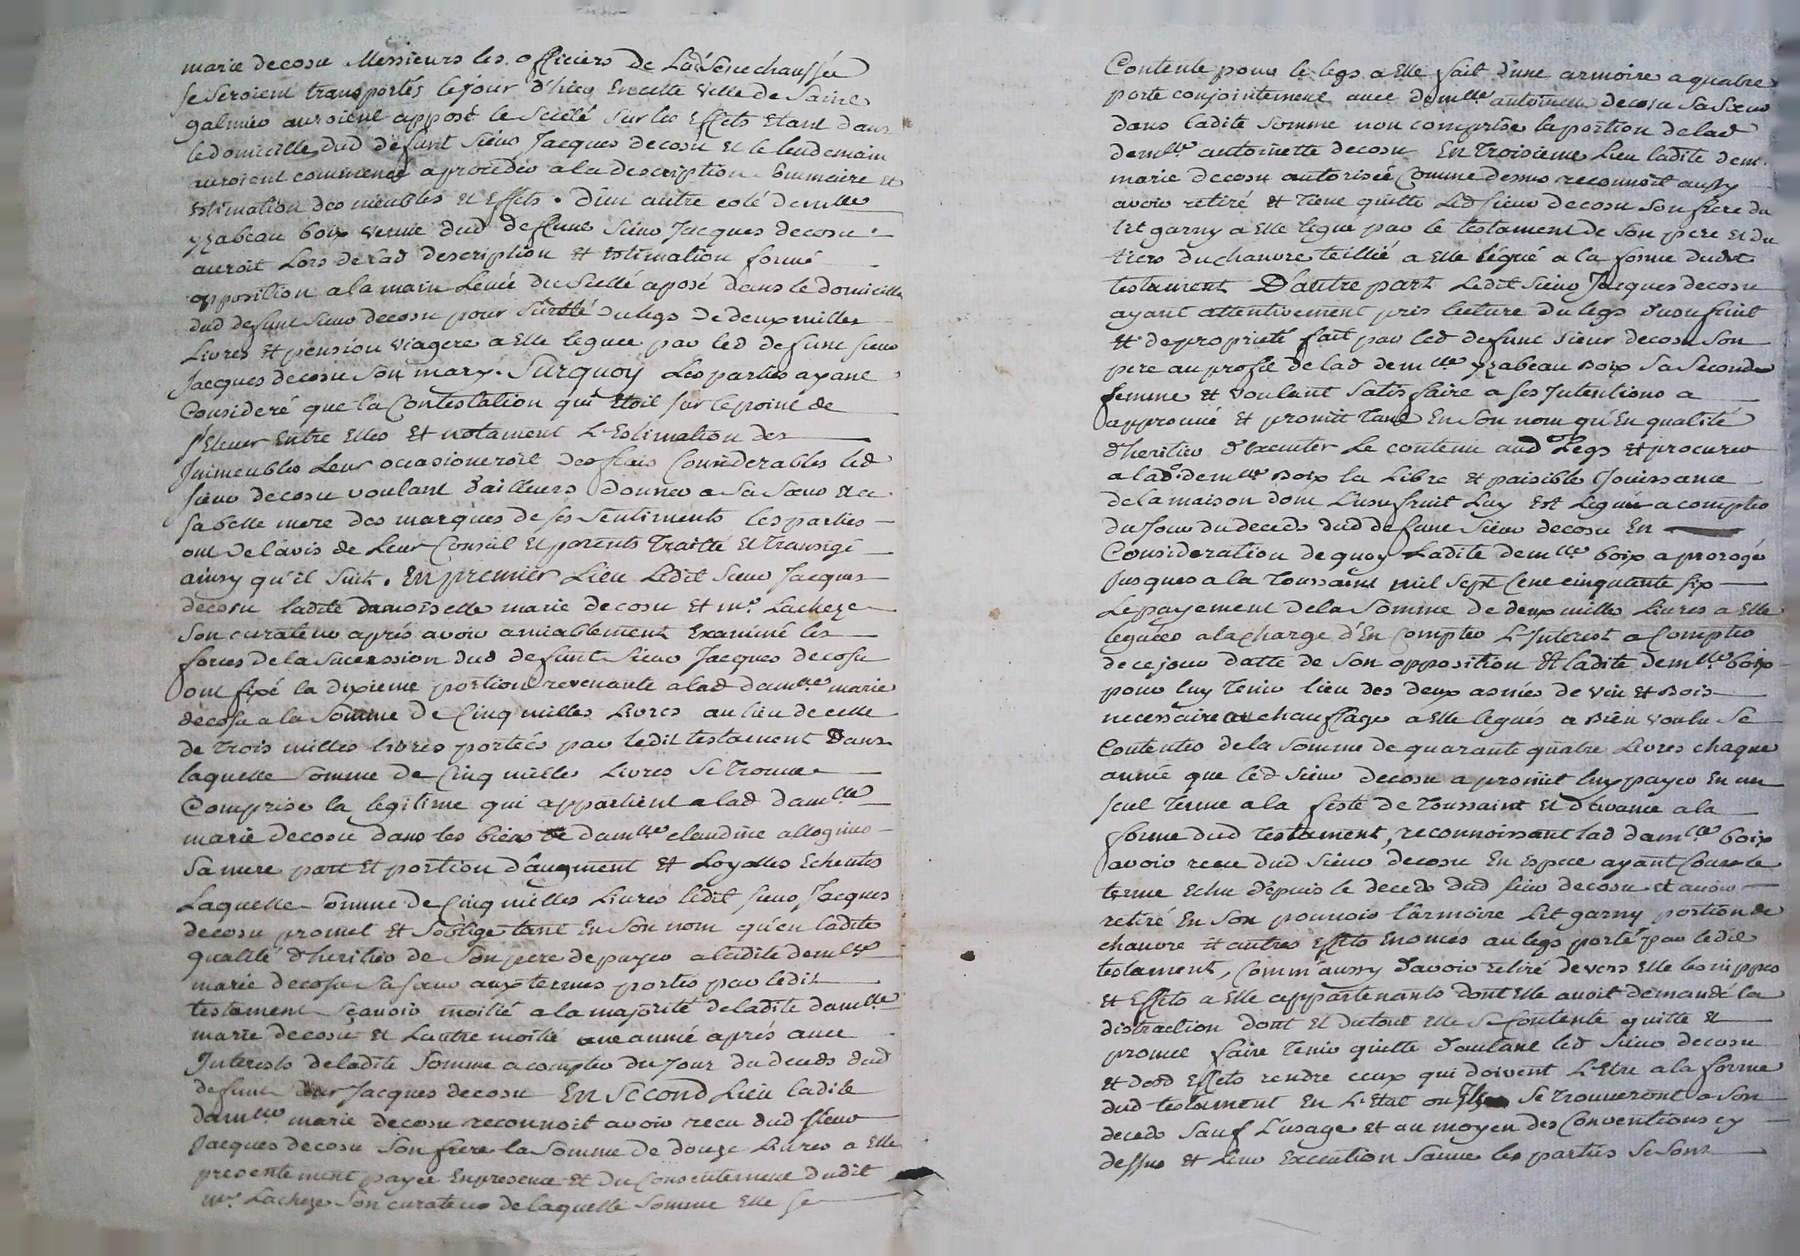 marie decosu Messieurs les officiers de Lad Senechaussée
se seroient transportés le jour d'hier En cette ville de Saint
galmier auroient apposé le scéllé sur les Effets Etant dans
le domicille dud défunt Sieur Jacques decosu et le lendemain
auroient commencé a proceder a la description Sommaire et
Estimation des meubles et Effets. D'un autre coté demlle
yzabeau boix veuve dud deffunt Sieur Jacques decosu
auroit Lors de lad description et Estimation formé
opposition a la main Levée du Scellé aposé dans le domicille
dud defunt Sieur decosu pour Sureté du legs de deux milles
Livres et pension viagere a Elle leguée par led defunt sieur
Jacques decosu Son mary. Surquoy Les parties ayant
Consideré que la Contestation qui Etoit sur le point de
s'Elever Entre Elles et notament L'Estimation des
Immeubles Leur occasioneroit des frais Considerables led
sieur decosu voulant d'ailleurs donner a Sa Sœur et a
sa belle mere des marques de ses Sentiments les parties
ont de l'avis de Leur Conseil et parents Traitté et Transigé
ainsy qu'il suit. En premier Lieu Ledit Sieur Jacques
decosu ladite damoiselle marie decosu et mr. Lacheze
Son curateur aprés avoir amiablement Examiné les
forces de la sucession dud defunt Sieur Jacques decosu
ont fixé la dixieme portion revenante a lad damlle marie
decosu a la Somme de Cinq milles Livres au lieu de celle
de trois milles livres portée par ledit testament Dans
laquelle Somme de Cinq milles Livres Se trouve
Comprise la legitime qui appartient a lad damlle
marie decosu dans les biens de damlle claudine
Sa mere part et portion d'augment et Loyalles Echeutes
Laquelle Somme de Cinq milles Livres ledit sieur Jacques
decosu promet et S'oblige tant En Son nom qu'en ladite
qualité d'heritier de Son pere de payer a ladite demlle
marie decosu Sa sœur aux termes portés par ledit
testament Sçavoir moitié a la majorité de ladite damlle
marie decosu et Lautre moitié une année aprés avec
Interests de ladite Somme a compter du Jour du deceds dud
defunt Sieur Jacques decosu En Second Lieu ladite
damlle marie decosu reconnoit avoir recu dud Sieur
Jacques decosu Son frere la Somme de douze Livres a Elle
presentement payée En presence et du Consentement dudit
mr. Lacheze Son curateur de laquelle Somme Elle se
Contente pour le legs a Elle fait d'une armoire a quatre
porte conjointement avec demlle antoinette decosu Sa Sœur
dans ladite Somme non comprise la portion de lad
demlle antoinette decosu En Troisieme Lieu ladite dem.
marie decosu autorisée Comme dessus reconnoit aussy
avoir retiré et Tient quitte Led Sieur decosu Son frere du
Lit garny a Elle legué par le testament de Son pere et du
tiers du chanvre teillié a Elle légué a la forme dudit
testament D'autre part Ledit Sieur Jacques decosu
ayant attentivement pris lecture du legs d'usufruit
et de proprieté fait par led defunt Sieur decosu Son
pere au profit de lad demlle yzabeau Boix Sa Seconde
femme et voulant Satisfaire a ses Intentions a
approuvé et promit tant En Son nom qu'En qualité
d'heritier d'Executer Le contenu aud Legs et procurer
a lad. demlle Boix la Libre et paisible Jouissance
de la maison dont L'usufruit Luy Est Legué a compter
du Jour du deceds dud defunt Sieur decosu En
Consideration de quoy Ladite demlle boix a prorogé
jusques a la Toussaint mil sept Cent cinquante six
Le payement de la Somme de deux milles Livres a Elle
leguées a la charge d'En Compter L'Interest a Compter
de ce jour datte de Son opposition et ladite demlle boix
pour luy Tenir lieu des deux asnées de vin et Bois
necessaire au chauffage a Elle legués a Bien voulu Se
Contenter de la Somme de quarante quatre Livres chaque
année que led Sieur decosu a promit luy payer En un
seul terme a la feste de Toussaint et d'avance a la
forme dud testament, reconnoissant lad damlle boix
avoir recu dud Sieur decosu En Espece ayant Cours le
terme Echu depuis le deceds dud sieur decosu et avoir
retiré En Son pouvoir l'armoire Lit garny portion de
chanvre et autres Effets Enoncés au legs porté par ledit
testament, Comm'aussy d'avoir retiré devers Elle les nippes
et Effets a Elle appartenants dont Elle avoit demandé la
distraction dont et du tout Elle Se Contente quitte et
promet faire Tenir quitte d'autant led Sieur decosu
et desd Effets rendre ceux qui doivent L'Etre a la forme
dud testament En L'Etat ou Ils Se trouveront a Son
deceds Sauf L'usage et au moyen des Conventions cy
dessus et Leur Execution Sauve les parties Se Sont